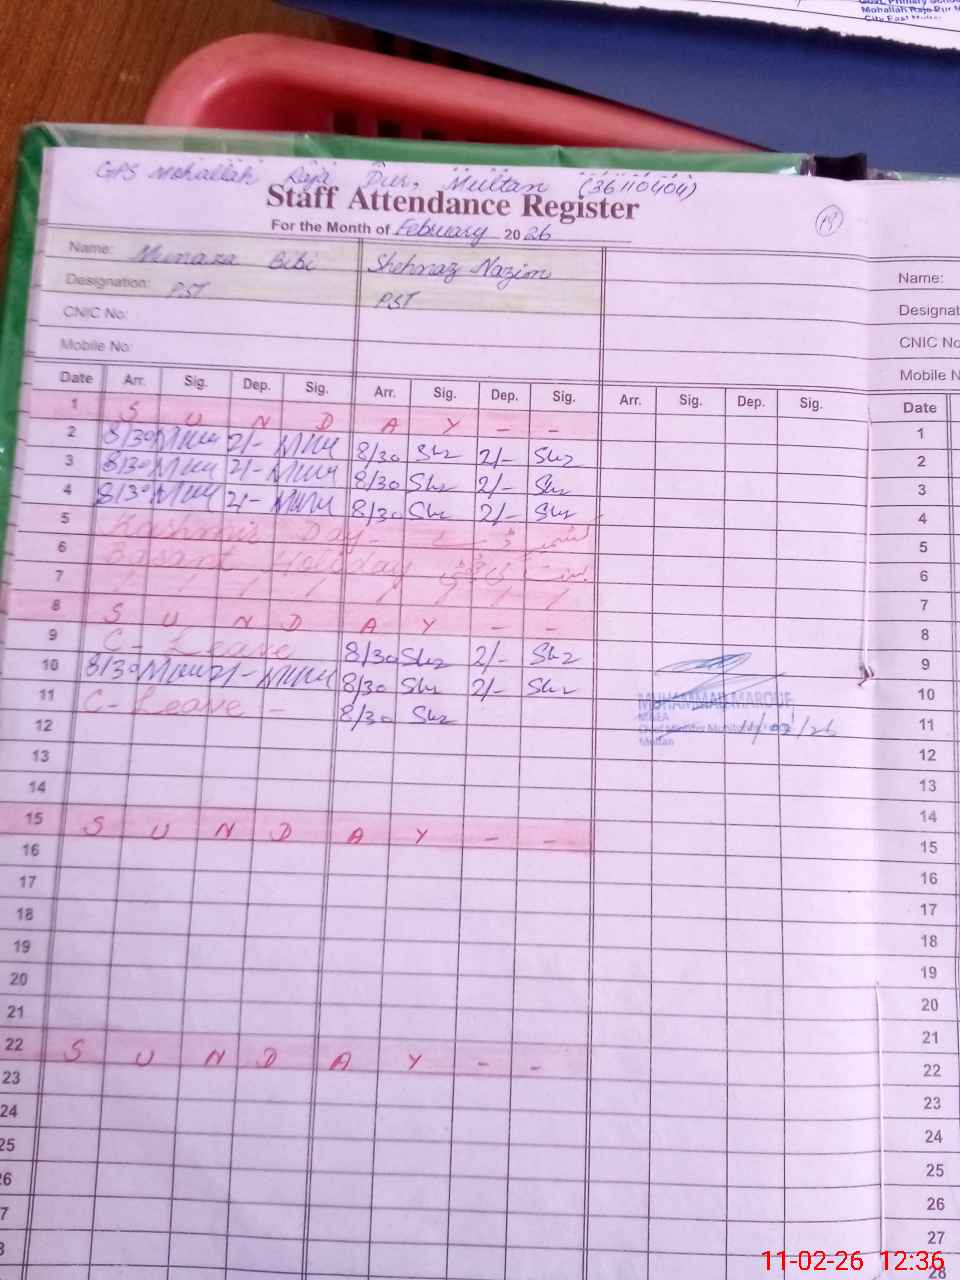 Mohallah Raja Pur M
City East Multan
GPS Mohallah Raja Pur, Multan (36110404)
Staff Attendance Register
For the Month of February 2026
Name: Munaza Bibi Shehnaz Nazim
Designation: PST PST
CNIC No:
Mobile No:
Date Arr. Sig. Dep. Sig. Arr. Sig. Dep. Sig. Arr. Sig. Dep. Sig.
1 S U N D A Y - -
2 8/30 2/- 8/30 Shz 2/- Shz
3 8/30 2/- 8/30 Shz 2/- Shz
4 8/30 2/- 8/30 Shz 2/- Shz
5 Kashmir Day - کشمیر ڈے
6 Basant Holiday بسنت کی چھٹی
7 / / / / / / / /
8 S U N D A Y - -
9 C - Leave 8/30 Shz 2/- Shz
10 8/30 2/- 8/30 Shz 2/- Shz
11 C - Leave - 8/30 Shz
12
13
14
15 S U N D A Y - -
16
17
18
19
20
21
22 S U N D A Y - -
23
24
25
26
27
28
MUHAMMAD MAROUF
MEA
Multan
11/02/26
Name:
Designat
CNIC No
Mobile N
Date
1
2
3
4
5
6
7
8
9
10
11
12
13
14
15
16
17
18
19
20
21
22
23
24
25
26
27
28
11-02-26 12:36